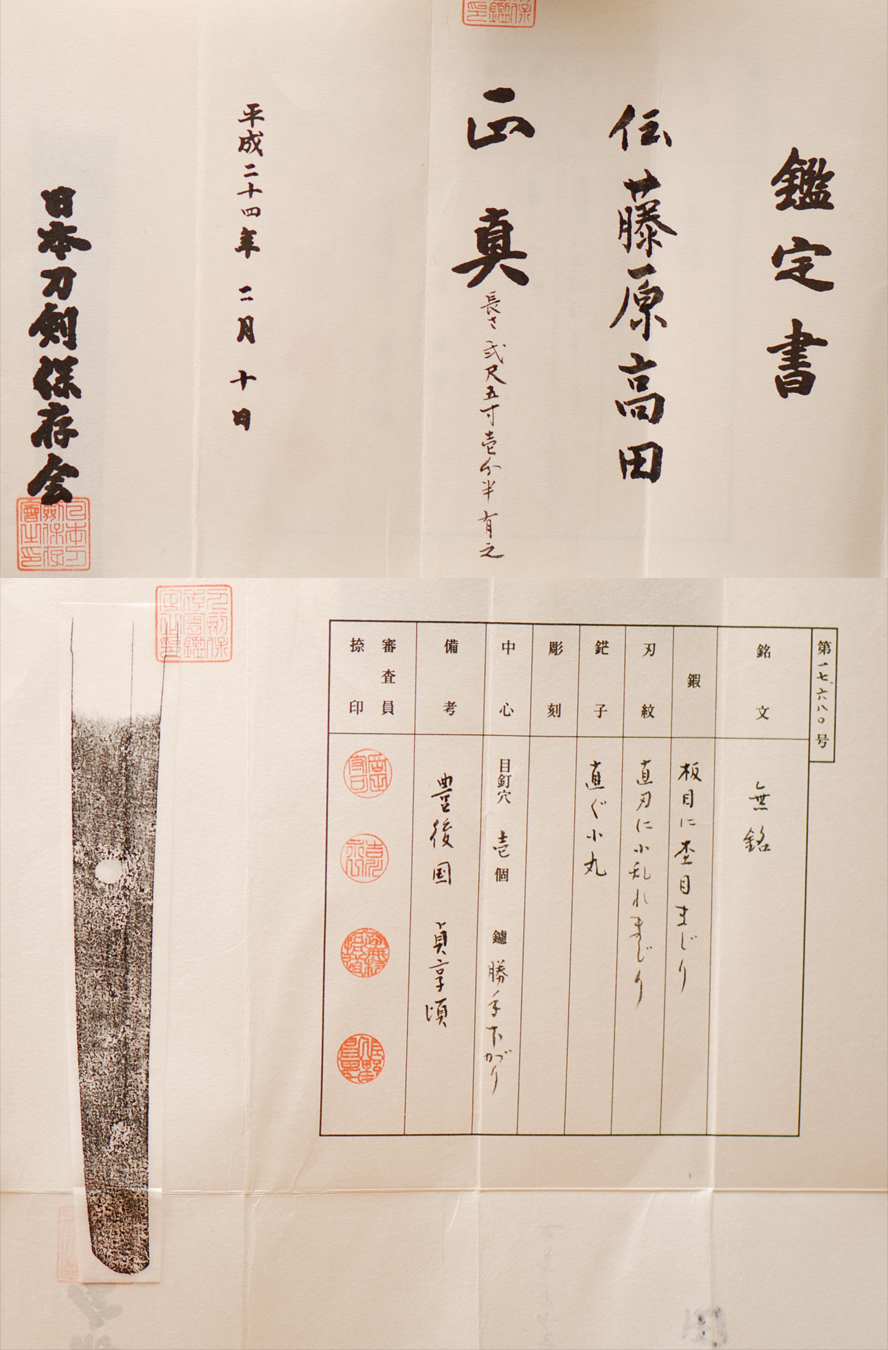 鑑定書
伝 藤原高田
正真
長さ 弐尺五寸壱分半有之
平成二十四年 二月 十日
日本刀剣保存会
第一七、六八〇号
銘文
無銘
鍜
板目に杢目まじり
刃紋
直刃に小乱れまじり
鋩子
直ぐ小丸
彫刻
中心
目釘穴 壱個 鑢 勝手下がり
備考
豊後国 貞享頃
審査員
捺印